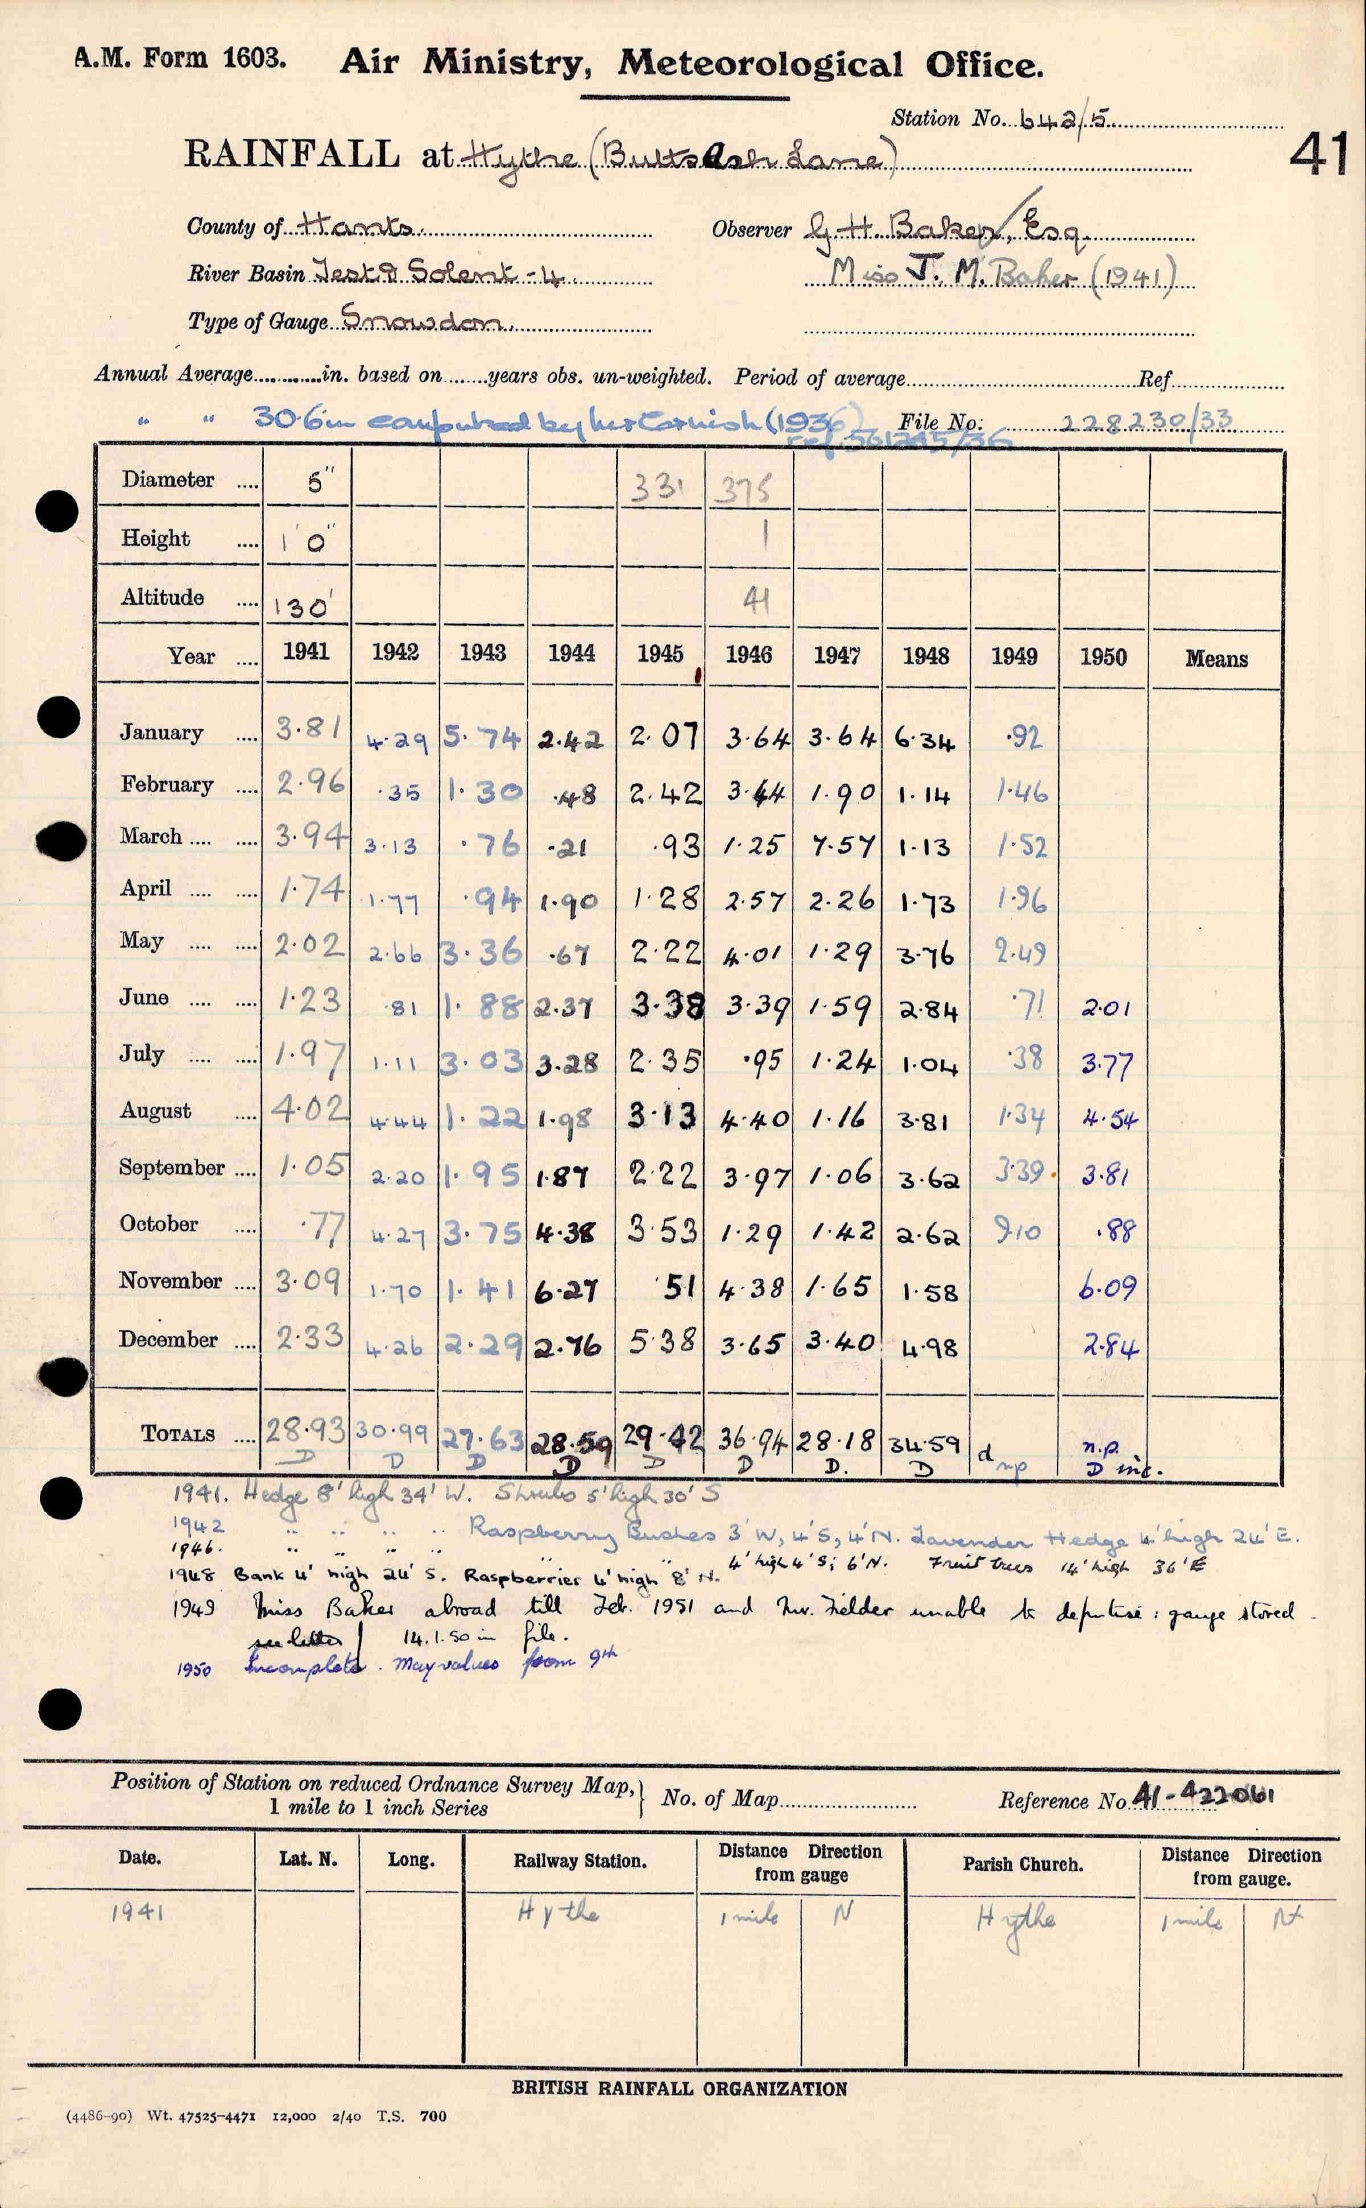 A.M. Form 1603. Air Ministry, Meteorological Office.
Station No. 642/5.
41
RAINFALL at Hythe (Butts Ash Lane)
County of Hants. Observer G. H. Baker, Esq.
River Basin Test & Solent - 4. Miss J. M. Baker (1941)
Type of Gauge Snowdon.
Annual Average............in. based on........years obs. un-weighted. Period of average............Ref............
" " 30.6in computed by Mr Cornish (1936) File No. 228230/33
ref. 561245/36
Diameter .... 5" 331 375
Height .... 1' 0" 1
Altitude .... 130' 41
Year .... 1941 1942 1943 1944 1945 1946 1947 1948 1949 1950 Means
January .... 3.81 4.29 5.74 2.42 2.07 3.64 3.64 6.34 .92
February .... 2.96 .35 1.30 .48 2.42 3.44 1.90 1.14 1.46
March .... .... 3.94 3.13 .76 .21 .93 1.25 7.57 1.13 1.52
April .... .... 1.74 1.77 .94 1.90 1.28 2.57 2.26 1.73 1.96
May .... .... 2.02 2.66 3.36 .67 2.22 4.01 1.29 3.76 2.49
June .... .... 1.23 .81 1.88 2.37 3.38 3.39 1.59 2.84 .71 2.01
July .... .... 1.97 1.11 3.03 3.28 2.35 .95 1.24 1.04 .38 3.77
August .... 4.02 4.44 1.22 1.98 3.13 4.40 1.16 3.81 1.34 4.54
September .... 1.05 2.20 1.95 1.87 2.22 3.97 1.06 3.62 3.39 3.81
October .... .77 4.27 3.75 4.38 3.53 1.29 1.42 2.62 9.10 .88
November .... 3.09 1.70 1.41 6.27 .51 4.38 1.65 1.58 6.09
December .... 2.33 4.26 2.29 2.76 5.38 3.65 3.40 4.98 2.84
TOTALS .... 28.93 30.99 27.63 28.59 29.42 36.94 28.18 34.59 d n.p.
D D D D D D D. D np D inc.
1941. Hedge 8' high 34' W. Shrubs 5' high 30' S
1942 " " " " Raspberry Bushes 3' W, 4' S, 4' N. Lavender Hedge 4' high 24' E.
1946. " " " " " 4' high 4' S; 6' N. Fruit trees 14' high 36' E
1948 Bank 4' high 24' S. Raspberries 4' high 8' N.
1949 Miss Baker abroad till Feb. 1951 and Mr. Fielder unable to deputise: gauge stored
see letter 14.1.50 in file.
1950 Incomplete. May values from 9th
Position of Station on reduced Ordnance Survey Map, } No. of Map............ Reference No. 41-422061
1 mile to 1 inch Series
Date. Lat. N. Long. Railway Station. Distance Direction Parish Church. Distance Direction
from gauge from gauge.
1941 Hythe 1 mile N Hythe 1 mile N
BRITISH RAINFALL ORGANIZATION
(4486-90) Wt. 47525-4471 12,000 2/40 T.S. 700